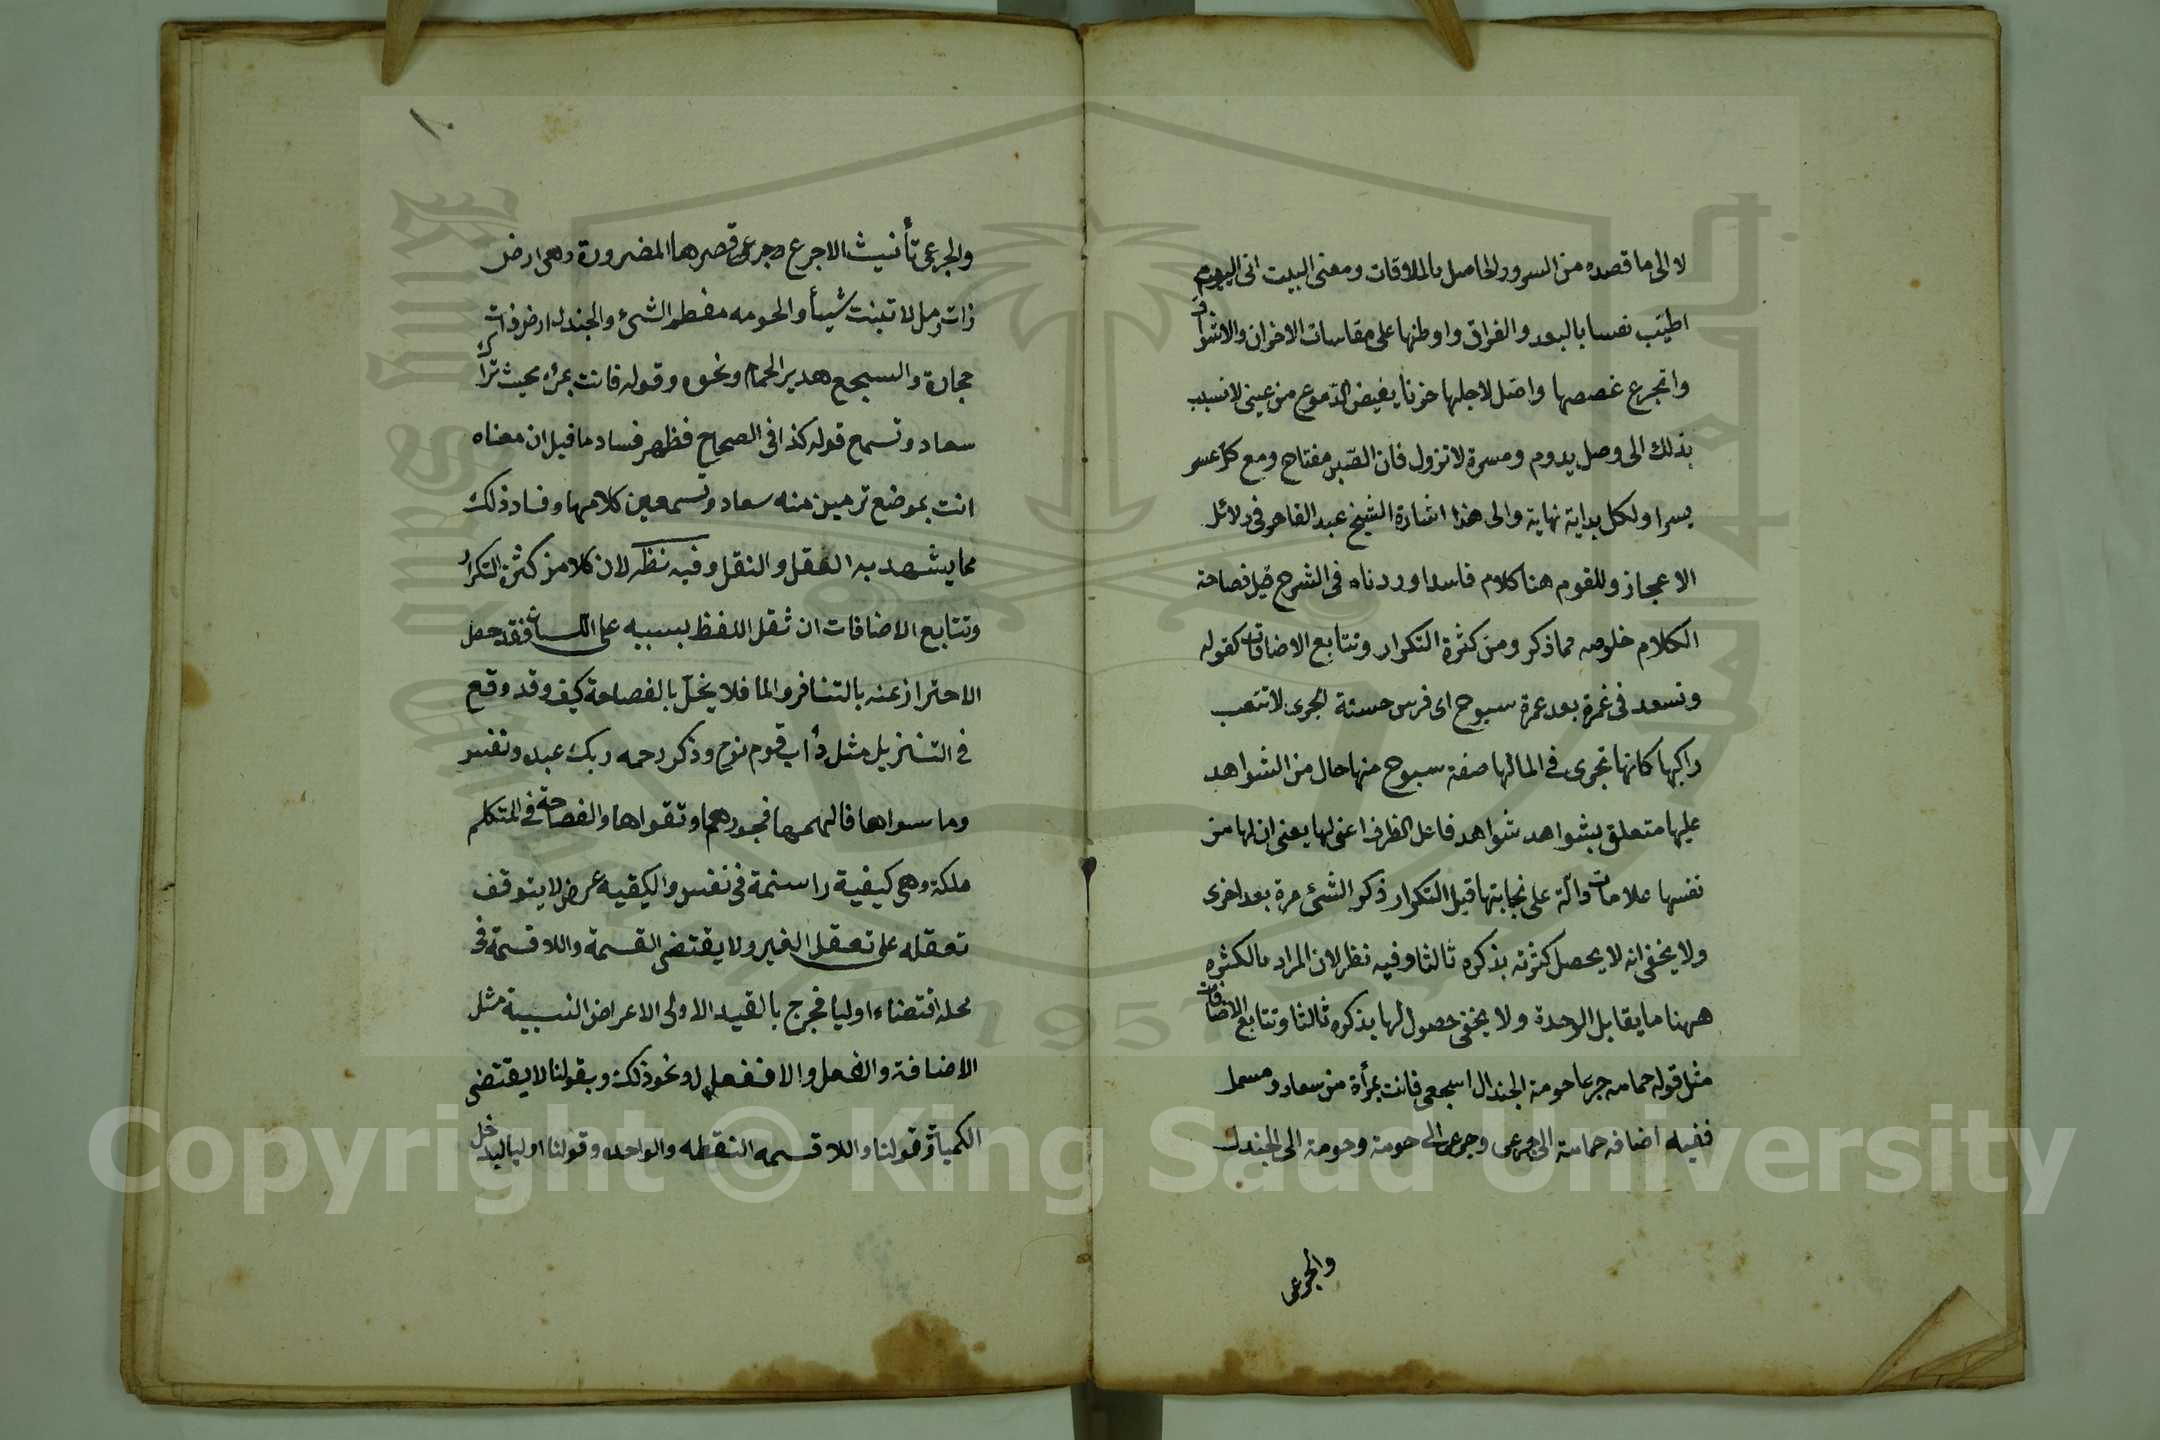 لا الى ما قصده من السرور الحاصل بالملاقات ومعنى البيت انى اليوم
اطيب نفسا بالبعد والفراق واوطنها على مقاسات الاخزان والاشواق
واتجرع غصصها واحتمل لاجلها حزنا يفيض الدموع من عينى لا تسبب
بذلك الى وصل يدوم ومسرة لا تزول فان الصبر مفتاح ومع كل عسر
يسرا ولكل بداية نهاية والى هذا اشارة الشيخ عبد القاهر فى دلائل
الاعجاز وللقوم هنا كلام فاسد اوردناه فى الشرح قيل فصاحة
الكلام خلوصه مما ذكر ومن كثرة التكرار وتتابع الاضافات كقوله
وتسعد فى غمرة بعد غمرة سبوح اى فرس حسنة الجرى لا تتعب
راكبها كانها تجرى فى الما لها صفة سبوح منها حال من الشواهد
عليها متعلق بشواهد شواهد فاعل الظرف اعنى لها يعنى ان لها من
نفسها علامات دالة على نجابتها قيل التكرار ذكر الشئ مرة بعد اخرى
ولا يخفى انه لا يحصل كثرته بذكره ثالثا وفيه نظر لان المراد بالكثره
ههنا ما يقابل الوحدة ولا يخفى حصولها بذكره ثالثا وتتابع الاضافات
مثل قوله حمامه جرعا حومة الجندل اسجعى فانت بمرأة من سعاد ومسمع
ففيه اضافه حمامة الى جرعى وجرعى الى حومة وحومة الى الجندل
والجرعى
١٠
والجرعى تأنيث الاجرع وجرعى قصرها المضرورة وهى ارض
ذات رمل لا تبنت شيأ والحومه مفطم الشئ والجندل ارض ذات
حجارة والسجع هدير الحمام ونحوه وقوله فانت بمرء بحيث تراك
سعاد وتسمع قوله كذا فى الصحاح فظهر فساد ما قيل ان معناه
انت بموضع ترمين منه سعاد وتسمعين كلامها وفساد ذلك
مما يشهد به العقل والنقل وفيه نظر لان كلا من كثرة التكرار
وتتابع الاضافات ان ثقل اللفظ بسببه على اللسان فقد حصل
الاحتراز عنه بالتنافر والما فلا يخل بالفصاحة كيف وقد وقع
فى التنزيل مثل دأب قوم نوح وذكر رحمه ربك عبده ونفس
وما سواها فالهمها فجورهها وتقواها والفصاحة فى المتكلم
ملكة وهى كيفية راسخة فى نفس والكيفيه عرض لا يتوقف
تعقله على تعقل الغير ولا يقتضى القسمة واللا قسمة فى
محله اقتضاء اوليا فخرج بالقيد الاولى الاعراض النسبية مثل
الاضافة والفعل والانفعال ونحو ذلك وبقولنا لا يقتضى
الكميات وقولنا واللا قسمه النقطه والواحده وقولنا اوليا ليدخل
Copyright © King Saud University
1957